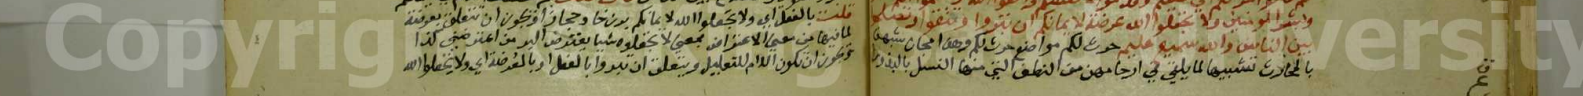 وبشر المؤمنين ولا تجعلوا الله عرضة لايمانكم ان تبروا وتتقوا وتصلحوا
بين الناس والله سميع عليم حرث لكم مواضع حرث لكم وهذا مجاز شبهها
بالمحارث تشبيها لما يلقى في ارحامهن من النطف التي منها النسل بالبذور
قلت بالفعل اي ولا تجعلوا الله لايمانكم برزخا وحجازا ويجوز ان تتعلق بعرضة
لما فيها من معنى الاعتراض بمعنى لا تجعلوه شيا يعترض البر من اعترضني كذا
ويجوز ان تكون اللام للتعليل ويتعلق ان تبروا بالفعل او بالعرضة اي ولا تجعلوا الله
Copyrig
versity